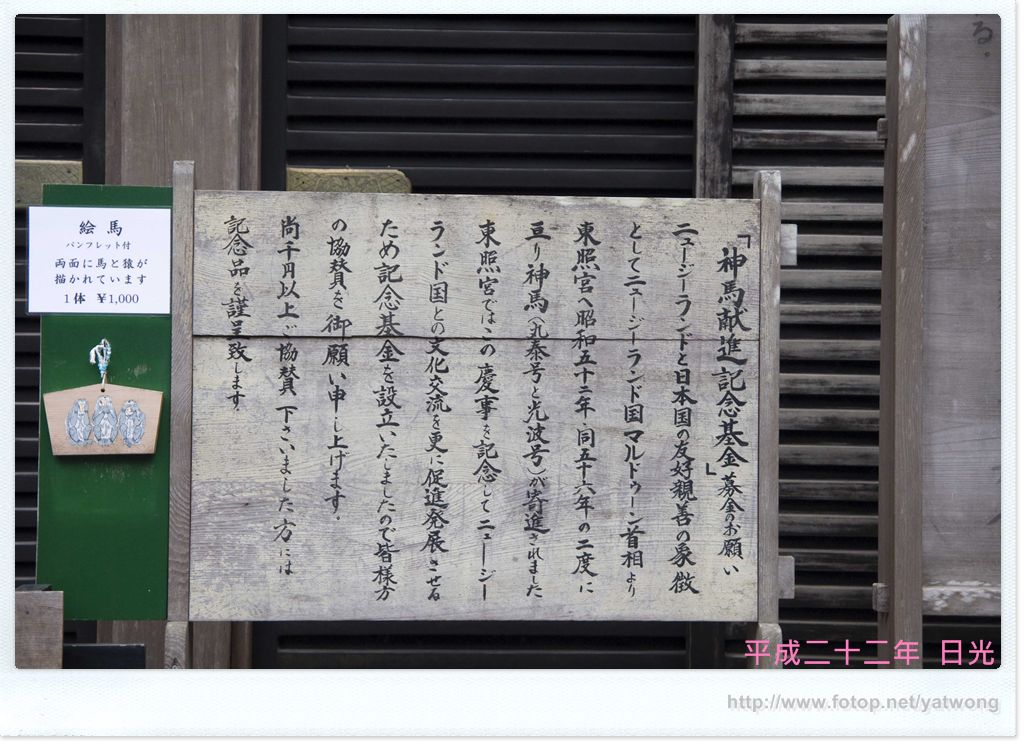 「神馬献進記念基金」募金のお願い
ニュージーランドと日本国の友好親善の象徴
としてニュージーランド国マルドゥーン首相より
東照宮へ昭和五十二年・同五十六年の二度に
亘り神馬(丸泰号と光波号)が寄進されました
東照宮ではこの慶事を記念してニュージー
ランド国との文化交流を更に促進発展させる
ため記念基金を設立いたしましたので皆様方
の協賛を御願い申し上げます。
尚千円以上ご協賛下さいました方には
記念品を謹呈致します。
絵馬
パンフレット付
両面に馬と猿が
描かれています
1体 ¥1,000
る。
平成二十二年 日光
http://www.fotop.net/yatwong